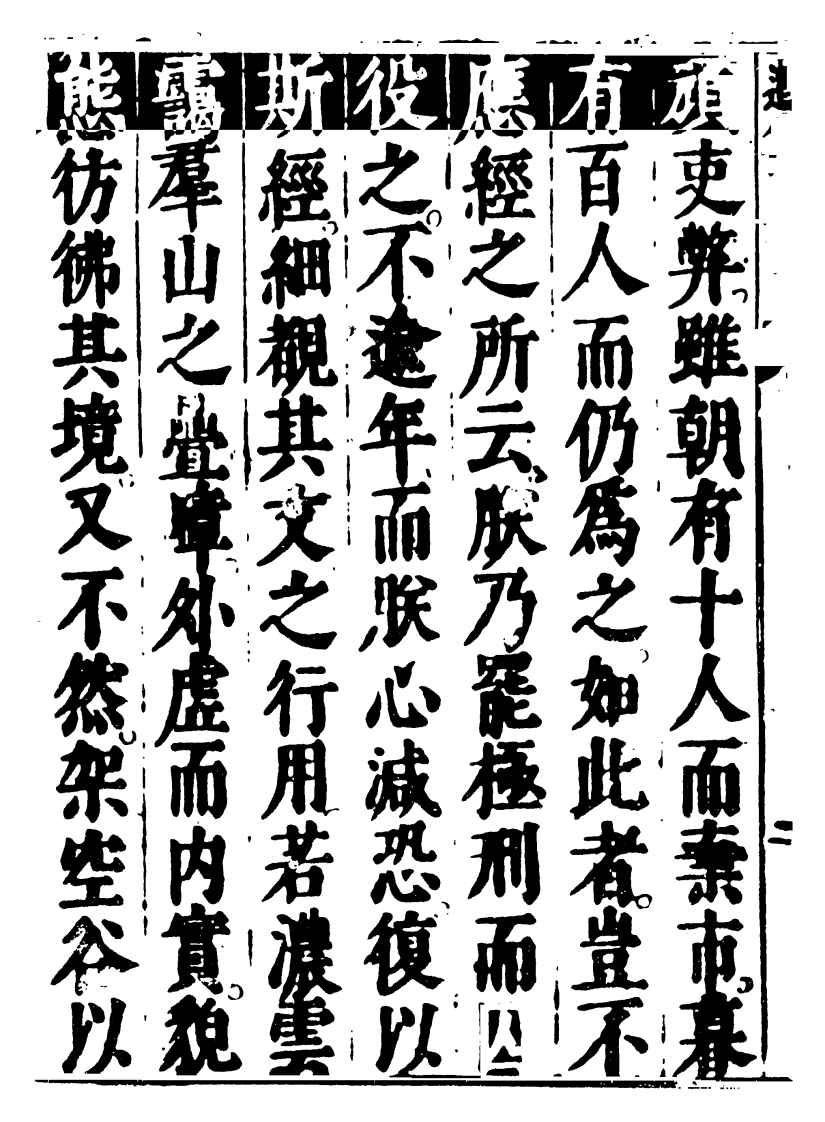 頑吏弊雖朝有十人而棄市暮
有百人而仍爲之如此者豈不
應經之所云朕乃罷極刑而囚
役之不逾年而朕心減恐復以
斯經細觀其文之行用若濃雲
靄羣山之疊嶂外虛而内實貌
態彷彿其境又不然架空谷以